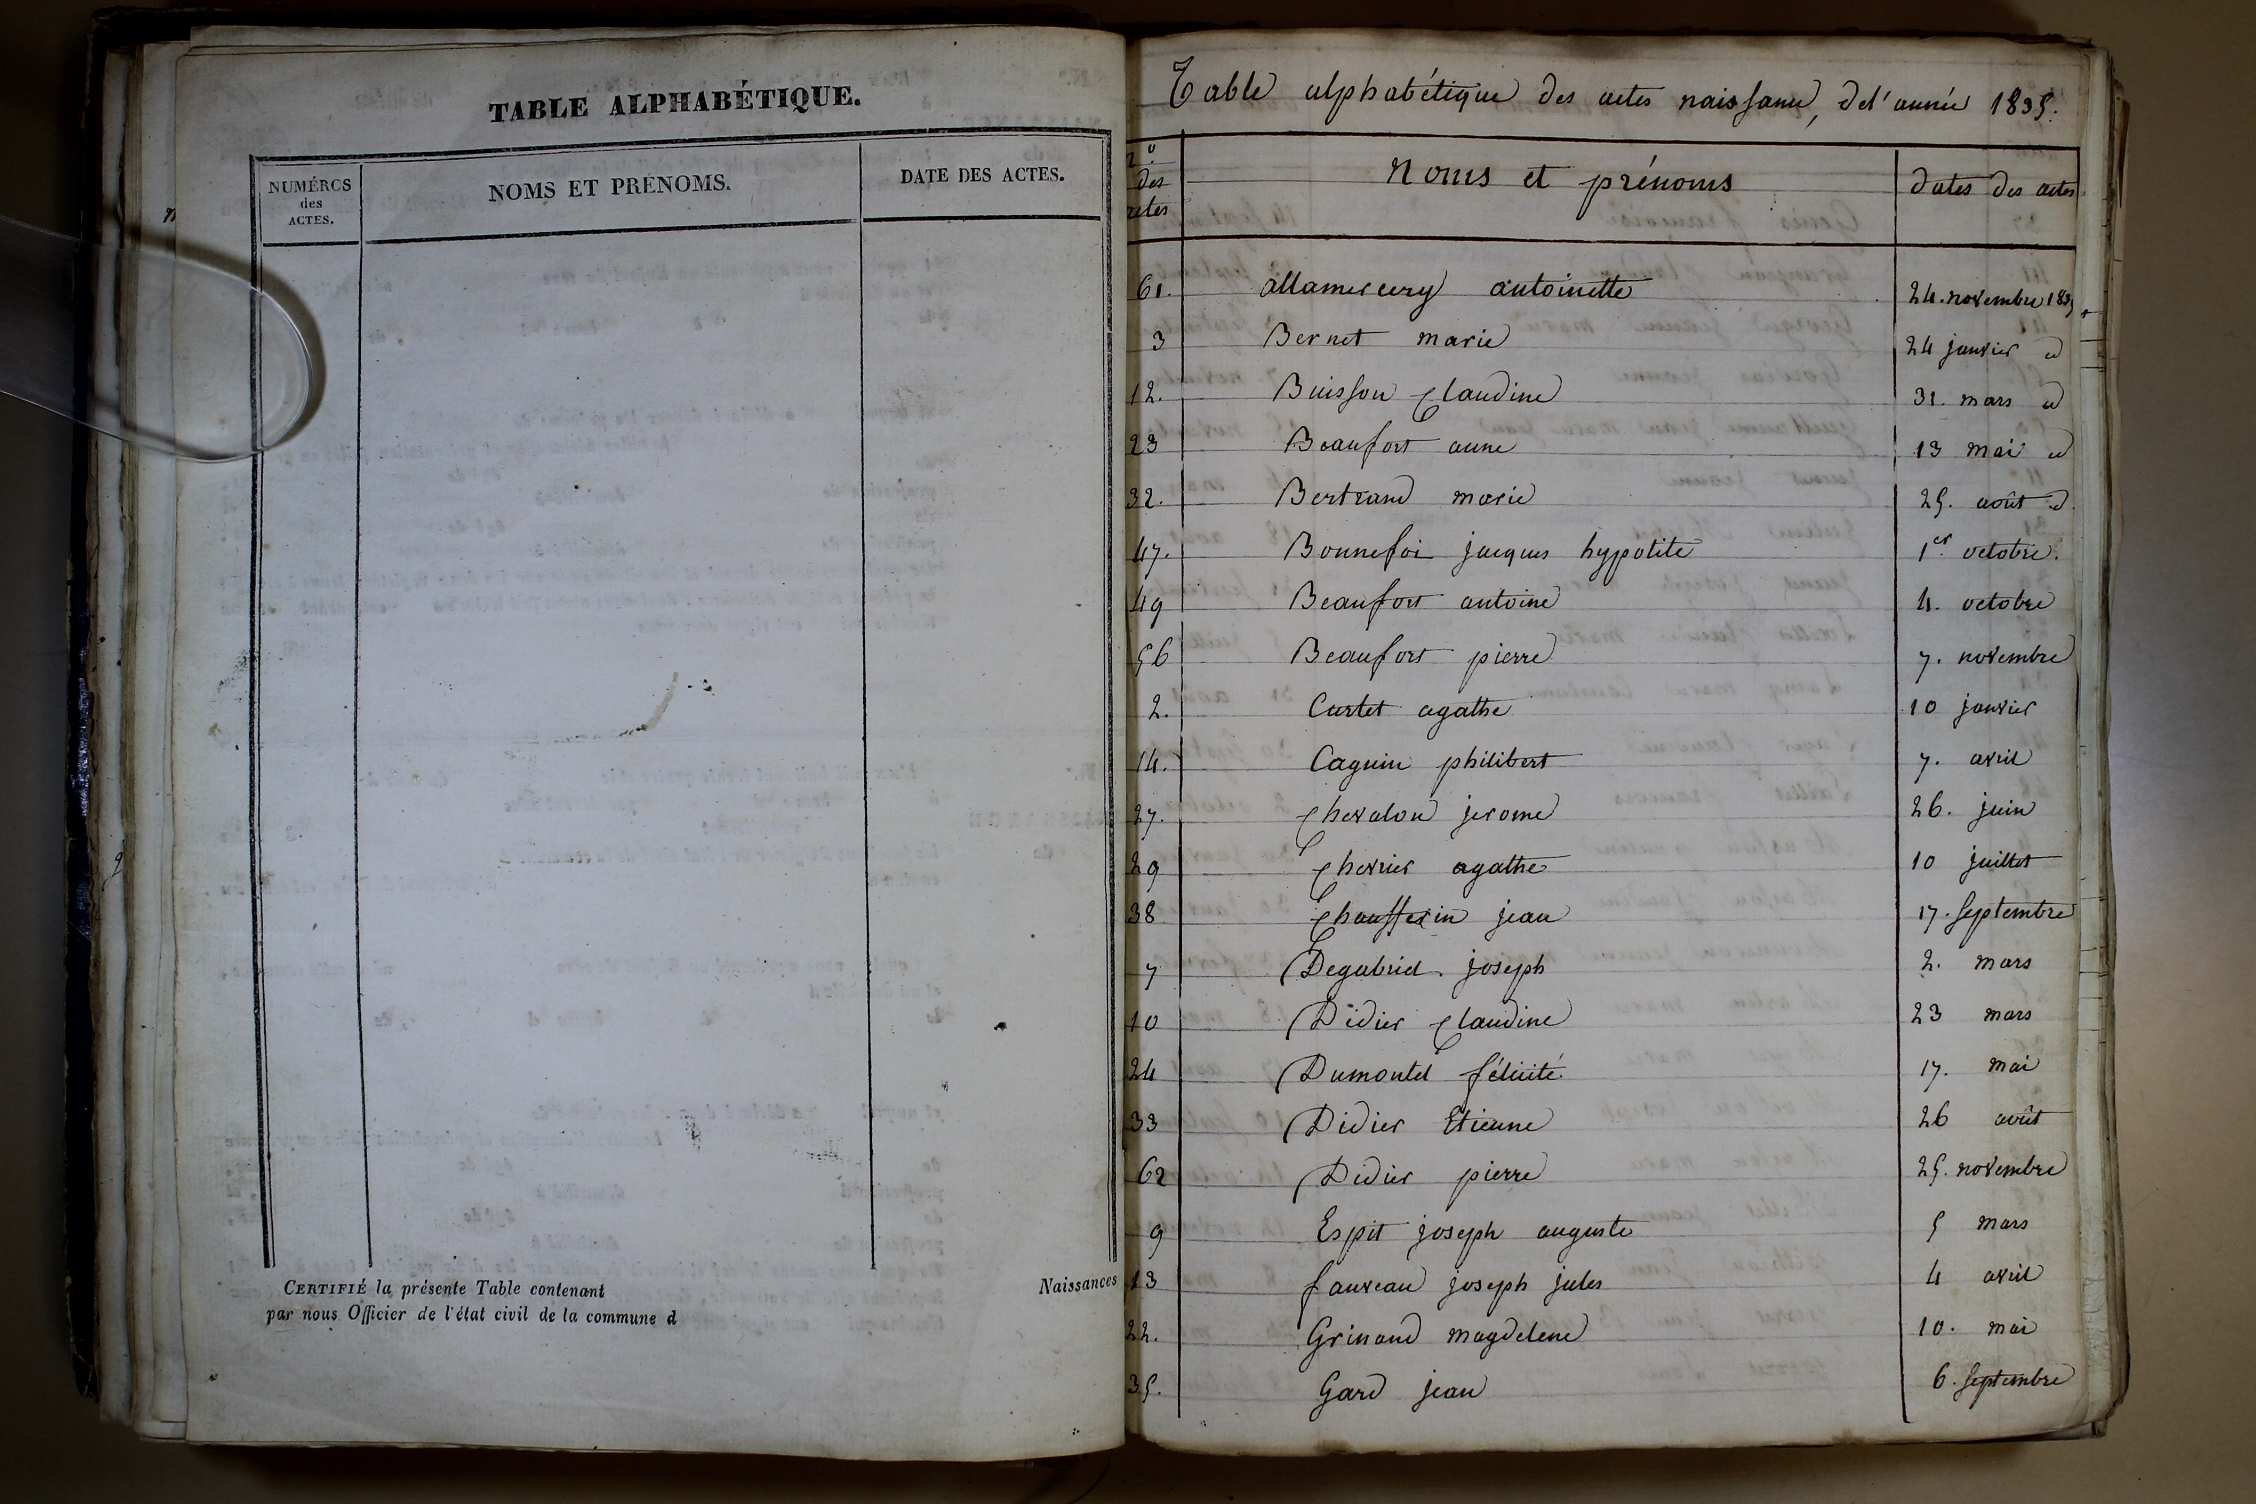 TABLE ALPHABÉTIQUE.
NUMÉROS des ACTES. NOMS ET PRÉNOMS. DATE DES ACTES.
CERTIFIÉ la présente Table contenant
par nous Officier de l'état civil de la commune d
Naissances
Table alphabétique des actes naissance, de l'année 1835.
n.o des actes Noms et prénoms dates des actes
61. allamercery antoinette 24. novembre 1835
3 Bernet marie 24 janvier d
12. Buisson Claudine 31. mars d
23 Beaufort anne 13 mai d
32. Bertrand marie 25. août d
47. Bonnefoi jacques hypolite 1er octobre.
49 Beaufort antoine 4. octobre
56 Beaufort pierre 7. novembre
2. Curtet agathe 10 janvier
14. Caguin philibert 7. avril
27. Chevalon jerome 26. juin
29 Chevrier agathe 10 juillet
38 Chausserin jean 17. septembre
7 Degabriel joseph 2. mars
10 Didier Claudine 23 mars
24 Dumontel félicité 17. mai
33 Didier Etienne 26 août
62 Didier pierre 25. novembre
9 Espit joseph auguste 5 mars
13 fauveau joseph jules 4 avril
22. Grinand magdelene 10. mai
35. Gard jean 6. septembre